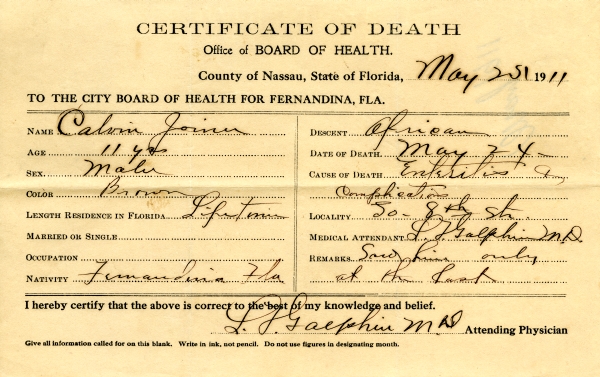 CERTIFICATE OF DEATH
Office of BOARD OF HEALTH.
County of Nassau, State of Florida, May 25 1911
TO THE CITY BOARD OF HEALTH FOR FERNANDINA, FLA.
NAME Calvin Joiner
AGE 11 yrs
SEX. Male
COLOR Brown
LENGTH RESIDENCE IN FLORIDA Lifetime
MARRIED OR SINGLE
OCCUPATION
NATIVITY Fernandina Fla
DESCENT African
DATE OF DEATH May 24
CAUSE OF DEATH Enteritis &
Complication
LOCALITY So - 8th St.
MEDICAL ATTENDANT L. J. Galphin M.D.
REMARKS Saw him only
at the last
I hereby certify that the above is correct to the best of my knowledge and belief.
L. J. Galphin M D Attending Physician
Give all information called for on this blank. Write in ink, not pencil. Do not use figures in designating month.